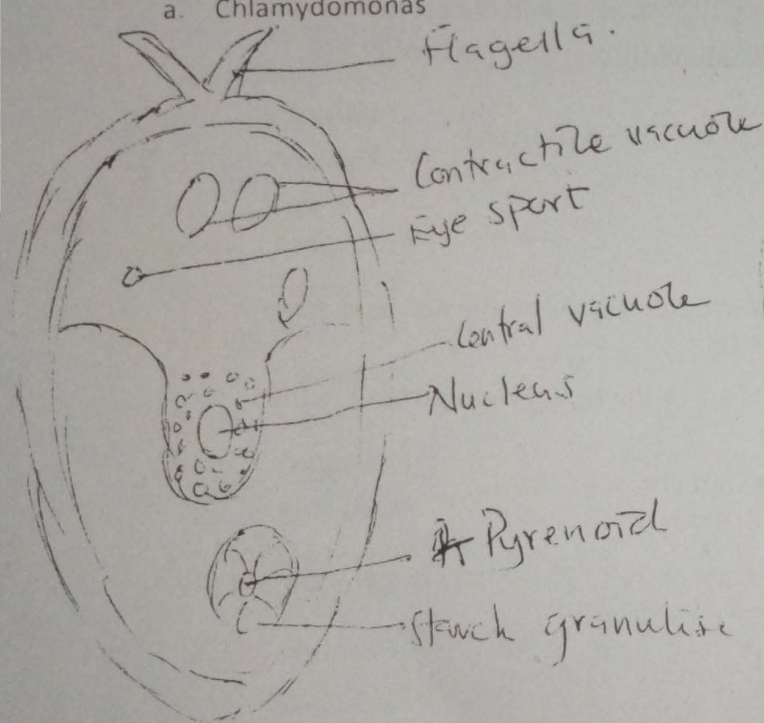 a. Chlamydomonas
Flagella.
Contractile vacuole
Eye sport
Central vacuole
Nucleus
Pyrenoid
Starch